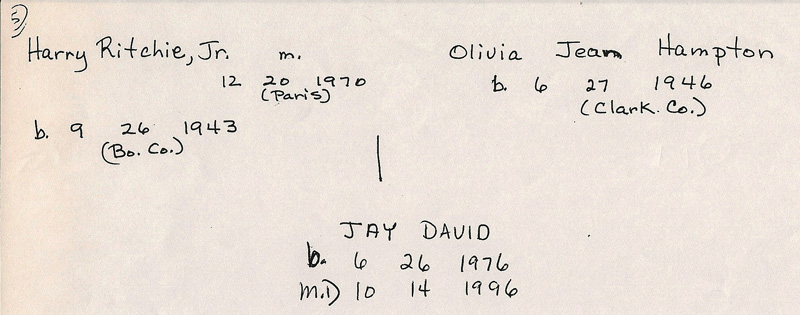 5)
Harry Ritchie, Jr. m. Olivia Jean Hampton
12 20 1970 b. 6 27 1946
(Paris) (Clark. Co.)
b. 9 26 1943
(Bo. Co.)
JAY DAVID
b. 6 26 1976
m.1) 10 14 1996